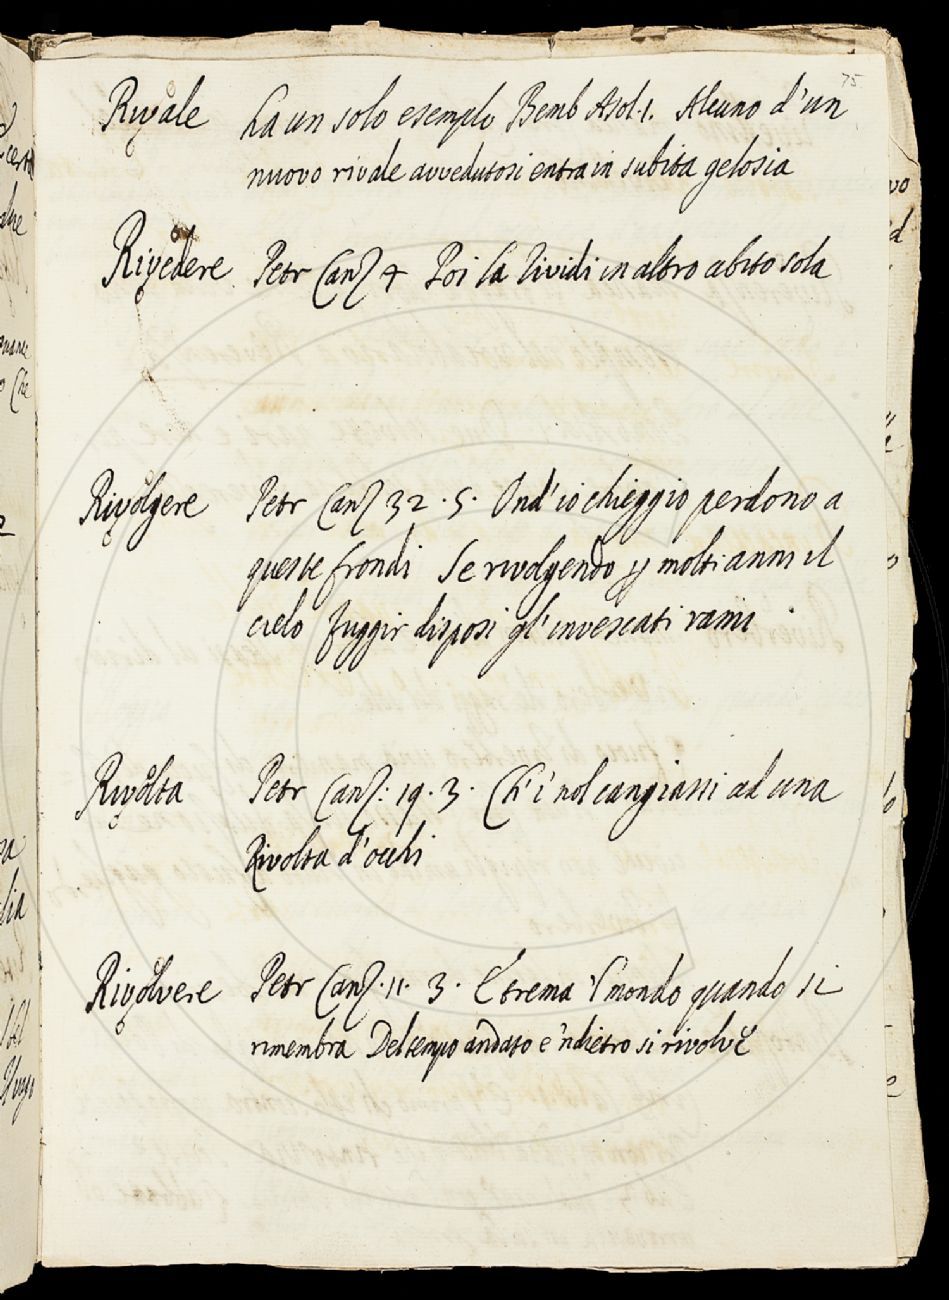 75
Rivale ha un solo esemplo Bemb Asol. 1. Alcuno d'un
nuovo rivale avvedutosi entra in subita gelosia
Rivedere Petr Canz 4 Poi la rividi in altro abito sola
Rivolgere Petr Canz 32. 5. Ond'io chieggio perdono a
queste frondi Se rivolgendo p molti anni il
cielo fuggir disposi gl'invescati rami
Rivolta Petr Canz: 19. 3. Ch'i nol cangiassi ad una
Rivolta d'occhi
Rivolvere Petr Canz. 11. 3. E trema 'l mondo quando si
rimembra Del tempo andato e 'ndietro si rivolve